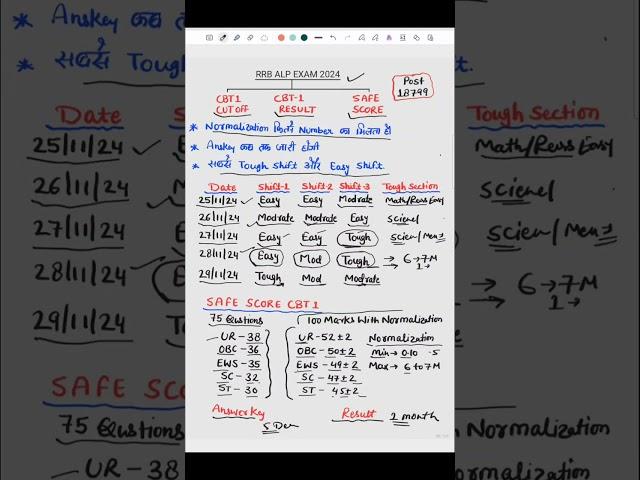 RRB ALP EXAM 2024
Post
18799
CBT1 CBT-1 SAFE
CUTOFF RESULT SCORE
* Normalization कितने Number का मिलता है।
* Anskey कब तक जारी होगी
* सबसे Tough Shift और Easy Shift.
Date Shift-1 Shift-2 Shift-3 Tough Section
25/11/24 Easy Easy Modrate Math/Reas Easy
26/11/24 Modrate Modrate Easy Science
27/11/24 Easy Easy Tough Scien/Mens
28/11/24 Easy Mod Tough → 6→7M
→ 1→
29/11/24 Tough Mod Modrate
SAFE SCORE CBT 1
75 Qustions 100 Marks With Normalization
UR-38 UR-52±2 Normalization
OBC-36 OBC-50±2 Min→0.10 .5
EWS-35 EWS-49±2 Max→ 6 to 7M
SC-32 SC-47±2
ST-30 ST-45±2
Answer Key Result 2 month
5 Dec